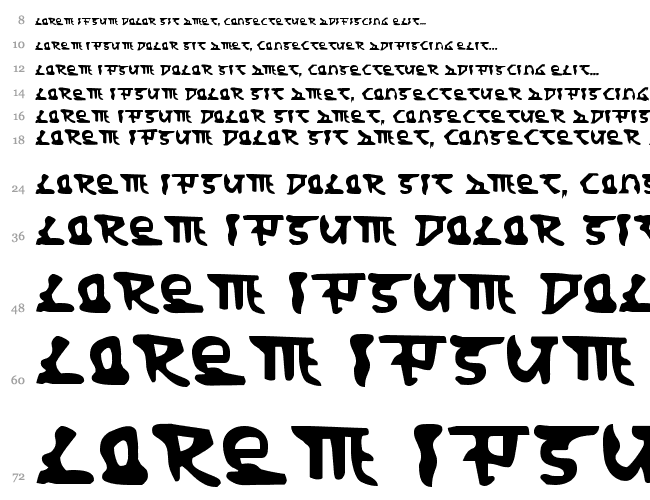 8 Lorem ipsum dolor sit amet, consectetuer adipiscing elit...
10 Lorem ipsum dolor sit amet, consectetuer adipiscing elit...
12 Lorem ipsum dolor sit amet, consectetuer adipiscing elit...
14 Lorem ipsum dolor sit amet, consectetuer adipiscing
16 Lorem ipsum dolor sit amet, consectetuer adipis
18 Lorem ipsum dolor sit amet, consectetuer
24 Lorem ipsum dolor sit amet, cons
36 Lorem ipsum dolor sit
48 Lorem ipsum dol
60 Lorem ipsum
72 Lorem ipsu